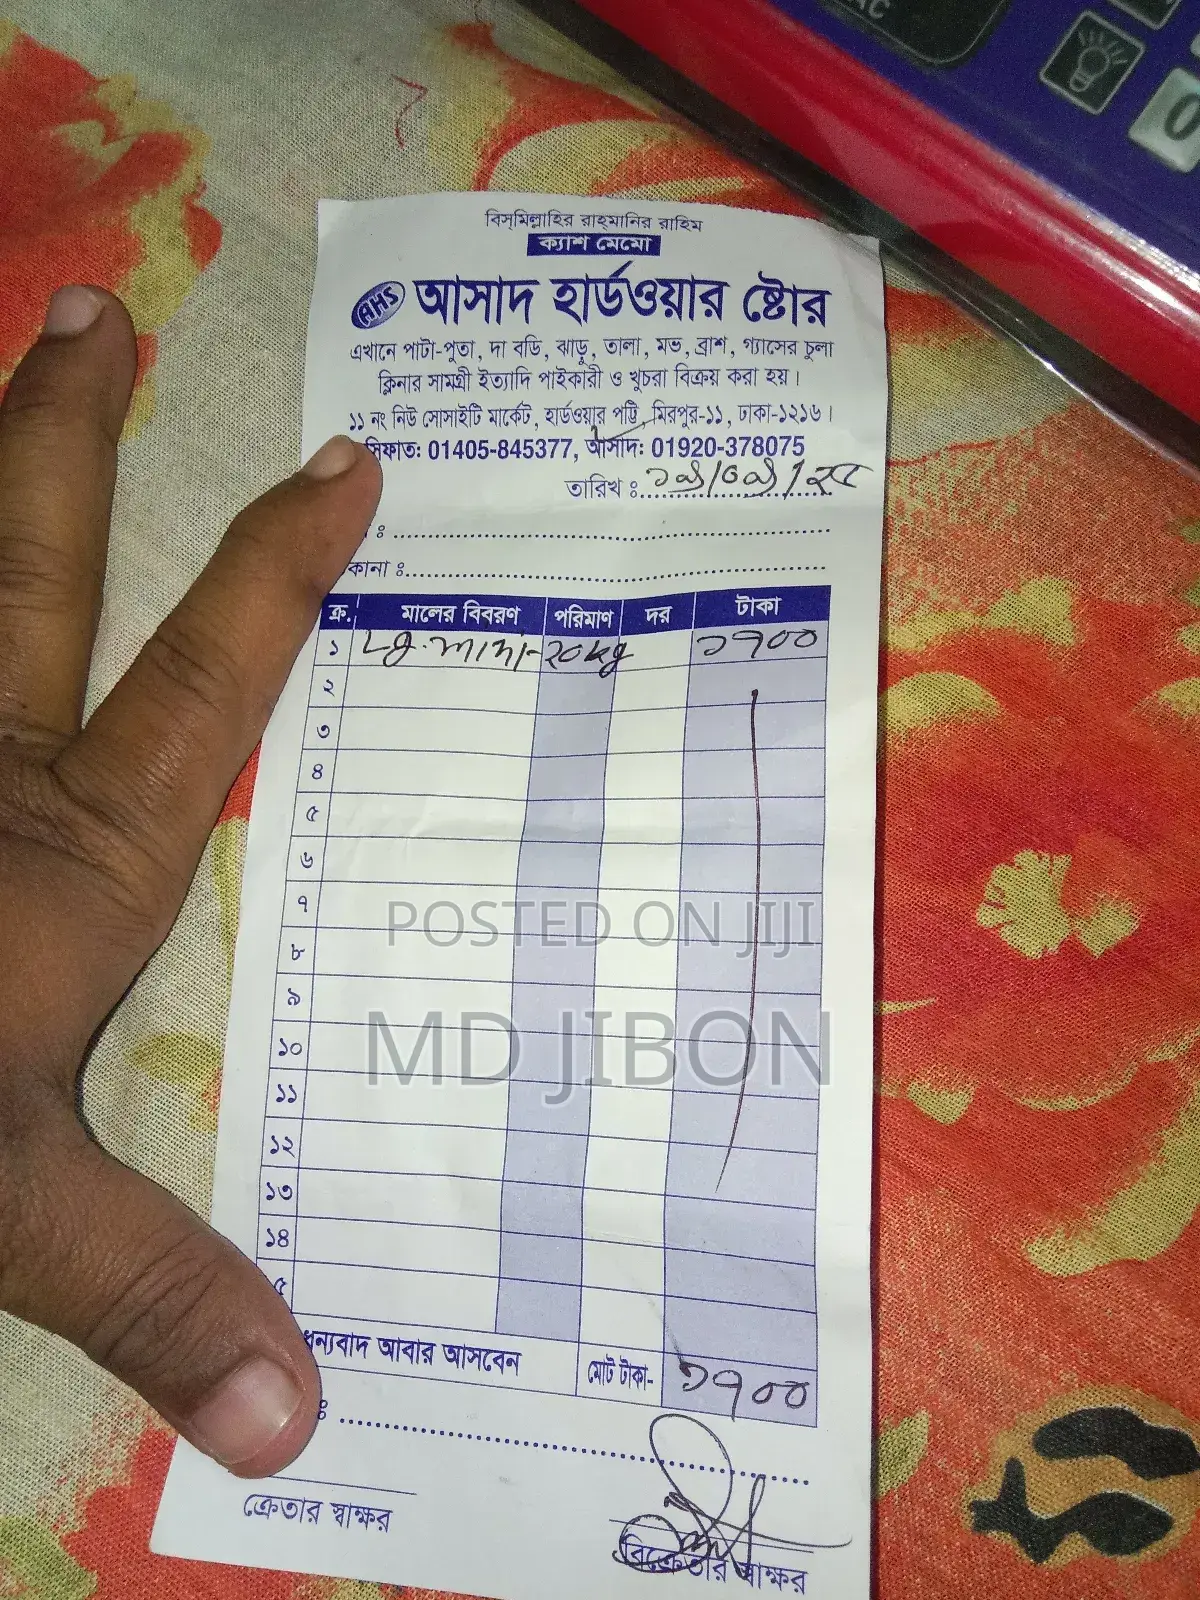 AC
0
বিস্‌মিল্লাহির রাহ্‌মানির রাহিম
ক্যাশ মেমো
AHS আসাদ হার্ডওয়ার ষ্টোর
এখানে পাটা-পুতা, দা বডি, ঝাড়ু, তালা, মভ, ব্রাশ, গ্যাসের চুলা
ক্লিনার সামগ্রী ইত্যাদি পাইকারী ও খুচরা বিক্রয় করা হয়।
১১ নং নিউ সোসাইটি মার্কেট, হার্ডওয়্যার পট্টি, মিরপুর-১১, ঢাকা-১২১৬।
সিফাত: 01405-845377, আসাদ: 01920-378075
তারিখ ঃ
ঃ
কানা ঃ
ক্র. মালের বিবরণ পরিমাণ দর টাকা
১ mini-২০kg ১৭০০
২
৩
৪
৫
৬
৭
৮
৯
১০
১১
১২
১৩
১৪
৫
ধন্যবাদ আবার আসবেন মোট টাকা- ১৭০০
ঃ
ক্রেতার স্বাক্ষর
বিক্রেতার স্বাক্ষর
POSTED ON JIJI
MD JIBON